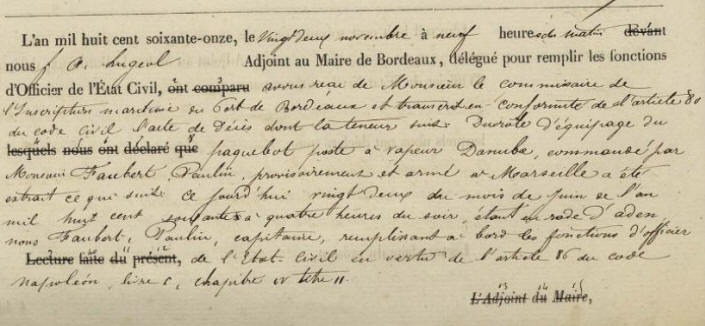 L'an mil huit cent soixante-onze, le vingt deux novembre à neuf heures du matin devant
nous J A Lugeol Adjoint au Maire de Bordeaux, délégué pour remplir les fonctions
d'Officier de l'État Civil, ont comparu avons reçu de Monsieur le commissaire de
l'Inscription maritime du Port de Bordeaux et transcrit en conformité de l'article 80
du code Civil l'acte de Décès dont la teneur suit: Du rôle d'équipage du
lesquels nous ont déclaré que paquebot poste à vapeur Danube, commandé par
Monsieur Faubert, Paulin, provisoirement et armé à Marseille a été
extrait ce qui suit: ce jourd'hui vingt deux du mois de Juin de l'an
mil huit cent soixante à quatre heures du soir, étant en rade d'aden
nous Faubert, Paulin, capitaine, remplissant à bord les fonctions d'officier
Lecture faite du présent, de l'Etat Civil en vertu de l'article 86 du code
napoléon, livre 1, chapitre IV titre II.
L'Adjoint du Maire,